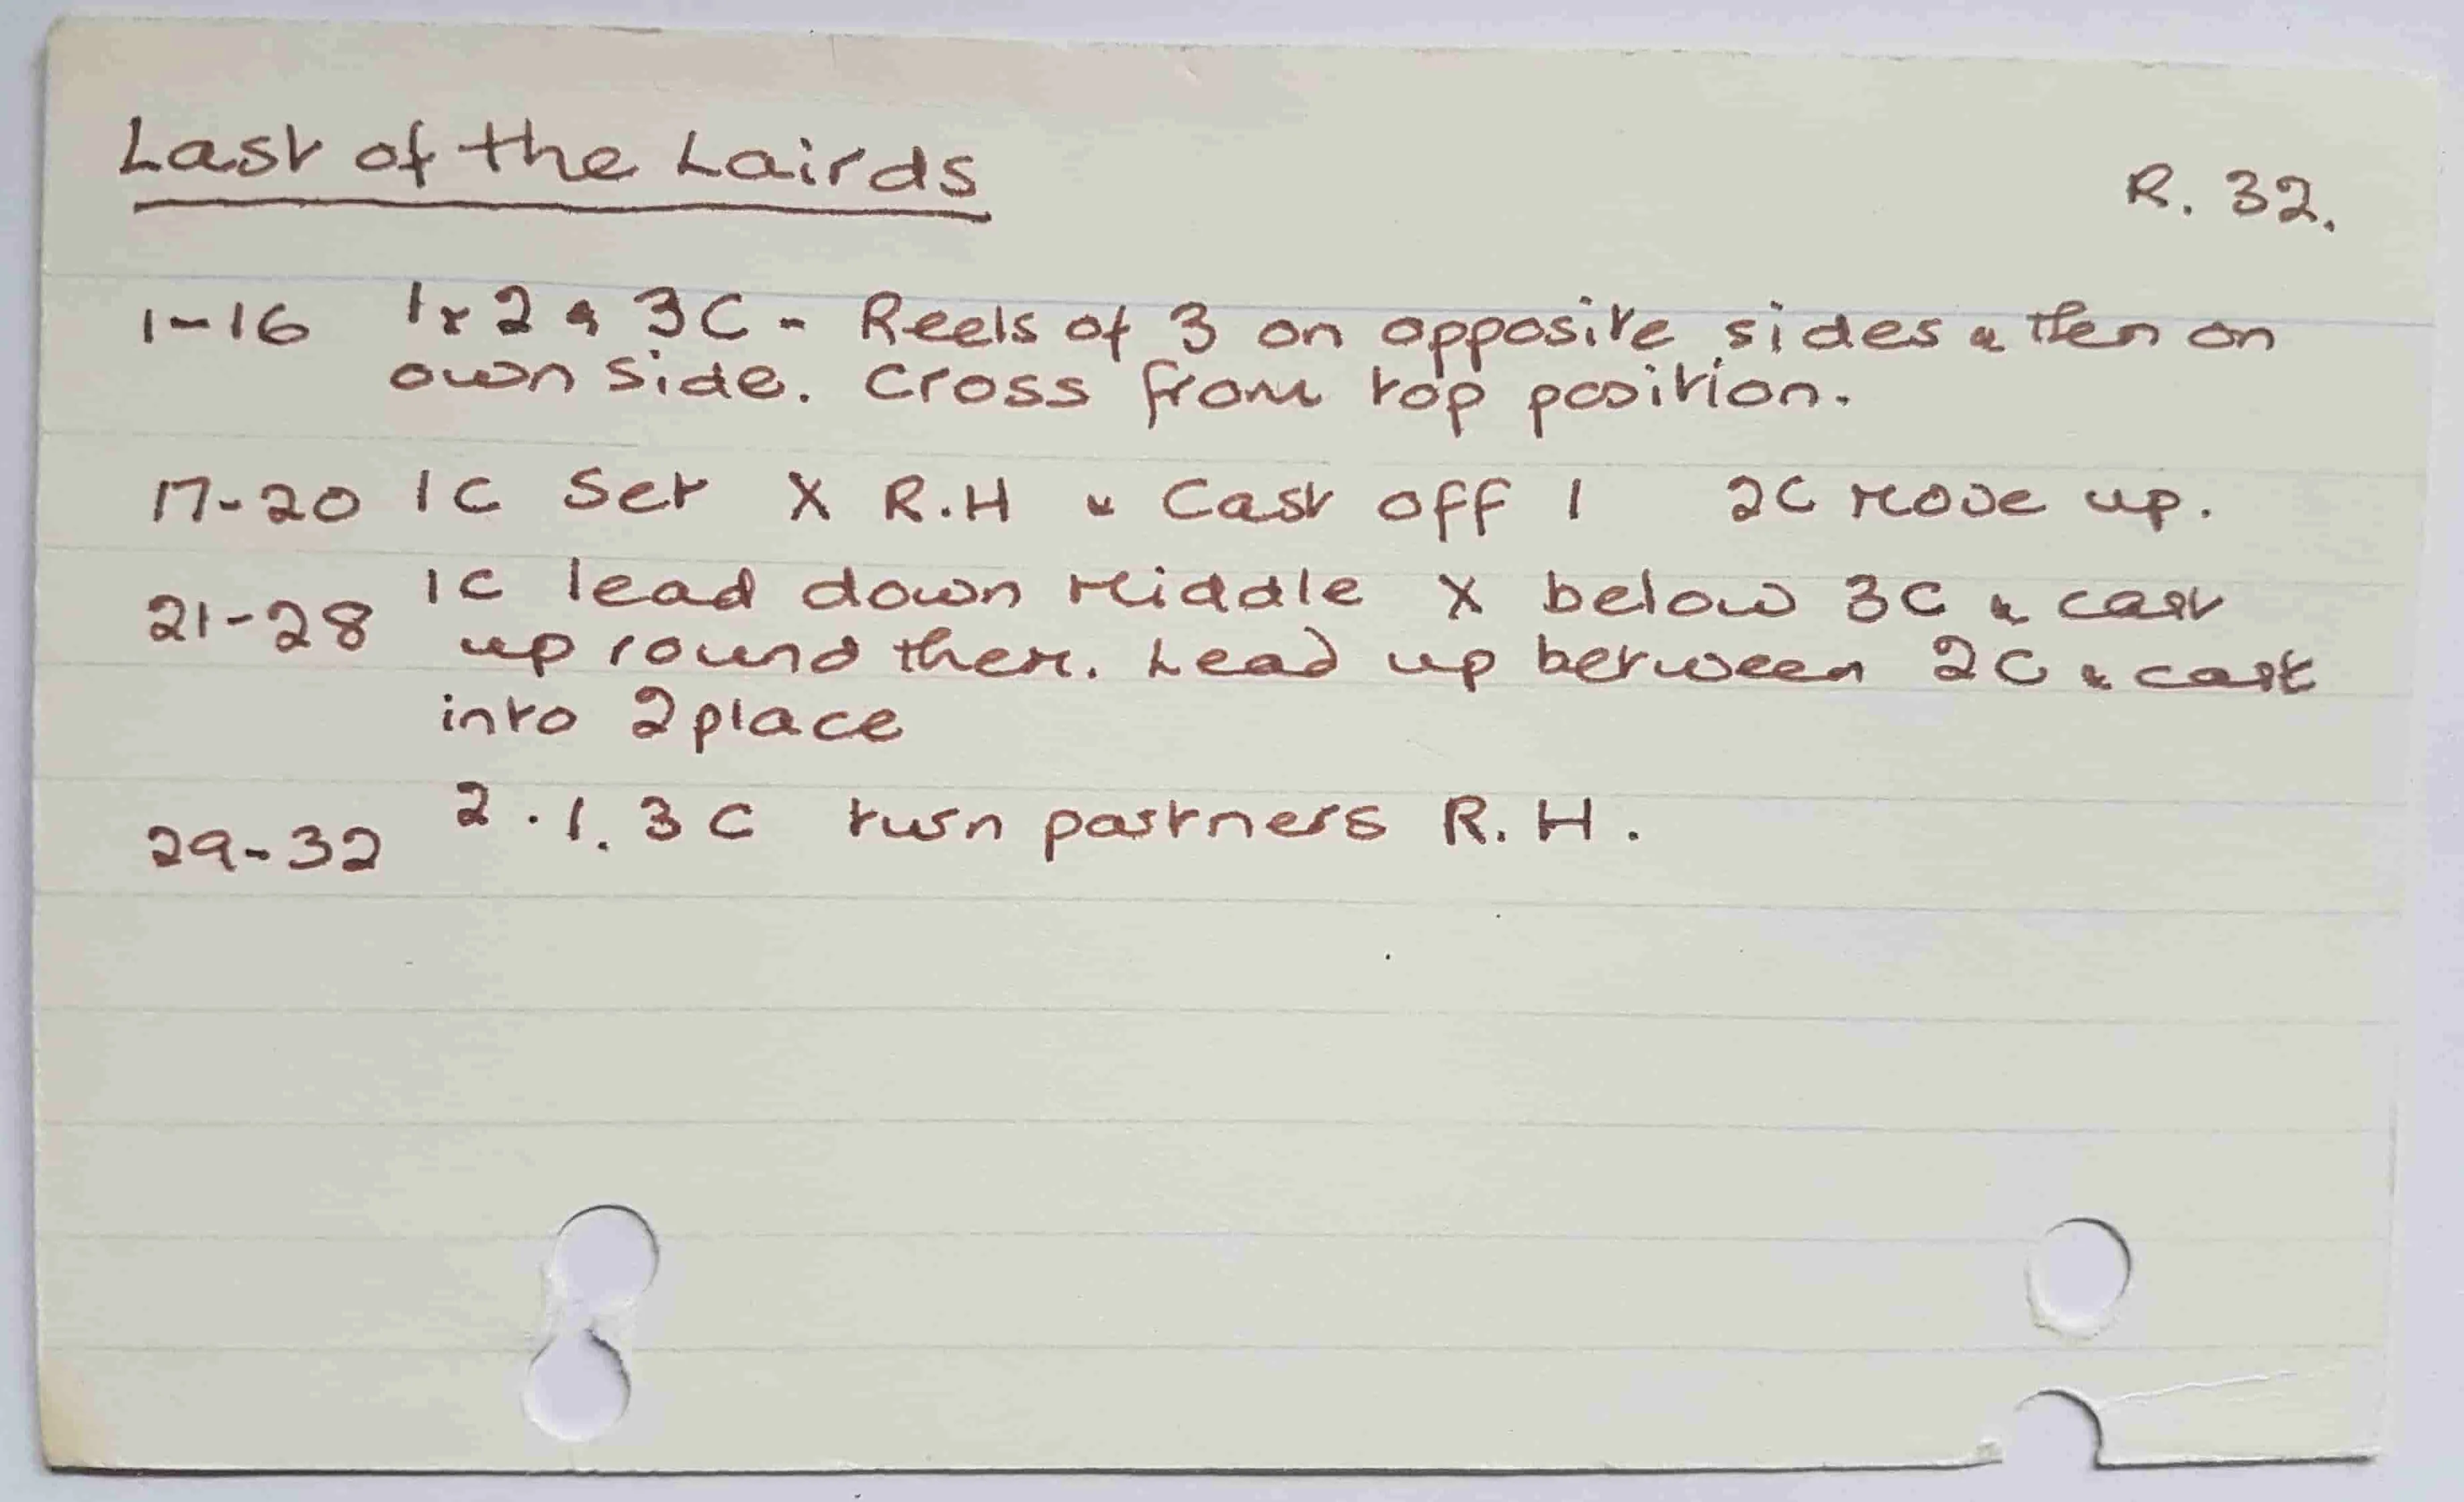 Last of the Lairds
R. 32.
1-16 1 & 2 & 3C - Reels of 3 on opposite sides & then on
own side. Cross from top position.
17-20 1C Set X R.H & Cast off 1 2C move up.
21-28 1C lead down middle X below 3C & cast
up round them. Lead up between 2C & cast
into 2 place
29-32 2.1.3C turn partners R.H.